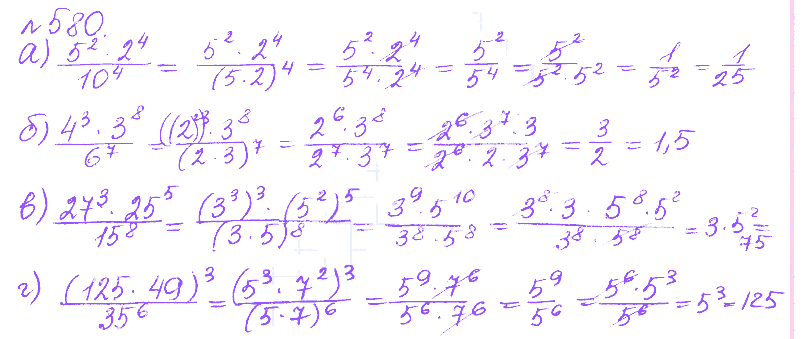 №580.
а) 5² · 2⁴ / 10⁴ = 5² · 2⁴ / (5 · 2)⁴ = 5² · 2⁴ / 5⁴ · 2⁴ = 5² / 5⁴ = 5² / 5² · 5² = 1 / 5² = 1 / 25
б) 4³ · 3⁸ / 6⁷ = ((2)²)³ · 3⁸ / (2 · 3)⁷ = 2⁶ · 3⁸ / 2⁷ · 3⁷ = 2⁶ · 3⁷ · 3 / 2⁶ · 2 · 3⁷ = 3 / 2 = 1,5
в) 27³ · 25⁵ / 15⁸ = (3³)³ · (5²)⁵ / (3 · 5)⁸ = 3⁹ · 5¹⁰ / 3⁸ · 5⁸ = 3⁸ · 3 · 5⁸ · 5² / 3⁸ · 5⁸ = 3 · 5² = 75
г) (125 · 49)³ / 35⁶ = (5³ · 7²)³ / (5 · 7)⁶ = 5⁹ · 7⁶ / 5⁶ · 7⁶ = 5⁹ / 5⁶ = 5⁶ · 5³ / 5⁶ = 5³ = 125